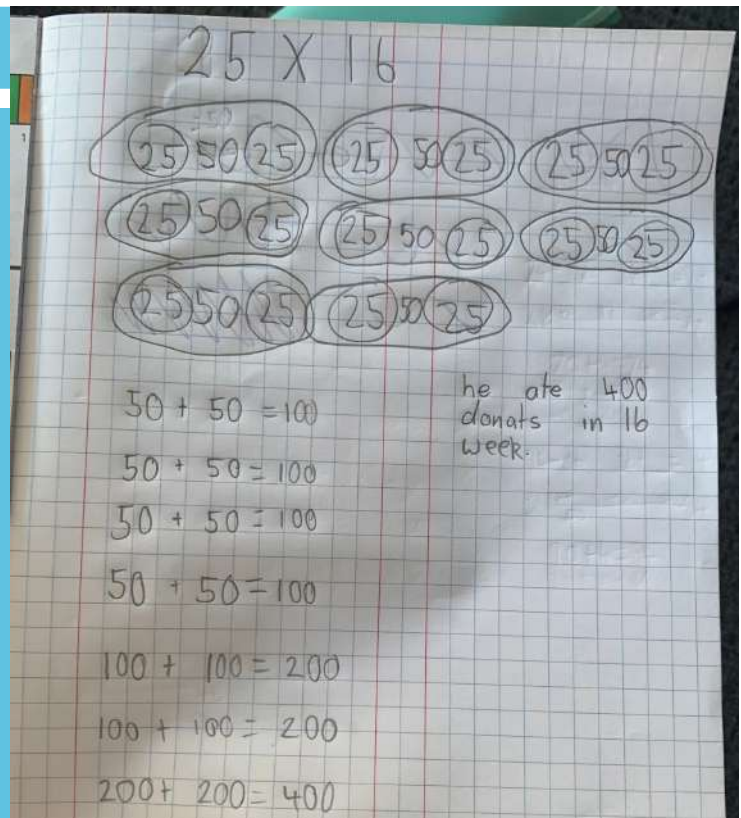 25 X 16
25 50 25 25 50 25 25 50 25
25 50 25 25 50 25 25 50 25
25 50 25 25 50 25
50 + 50 = 100
50 + 50 = 100
50 + 50 = 100
50 + 50 = 100
100 + 100 = 200
100 + 100 = 200
200 + 200 = 400
he ate 400
donats in 16
week.